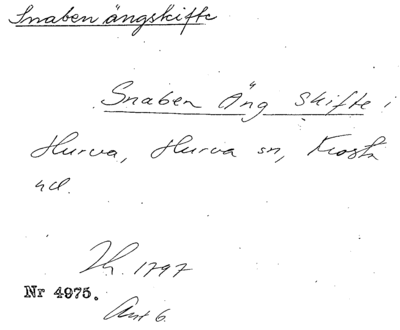 Snaben ängskifte
Snaben Äng skifte i
Hurva, Hurva sn, Frosta
hd.
Lh. 1797
Nr 4975.
Akt 6.